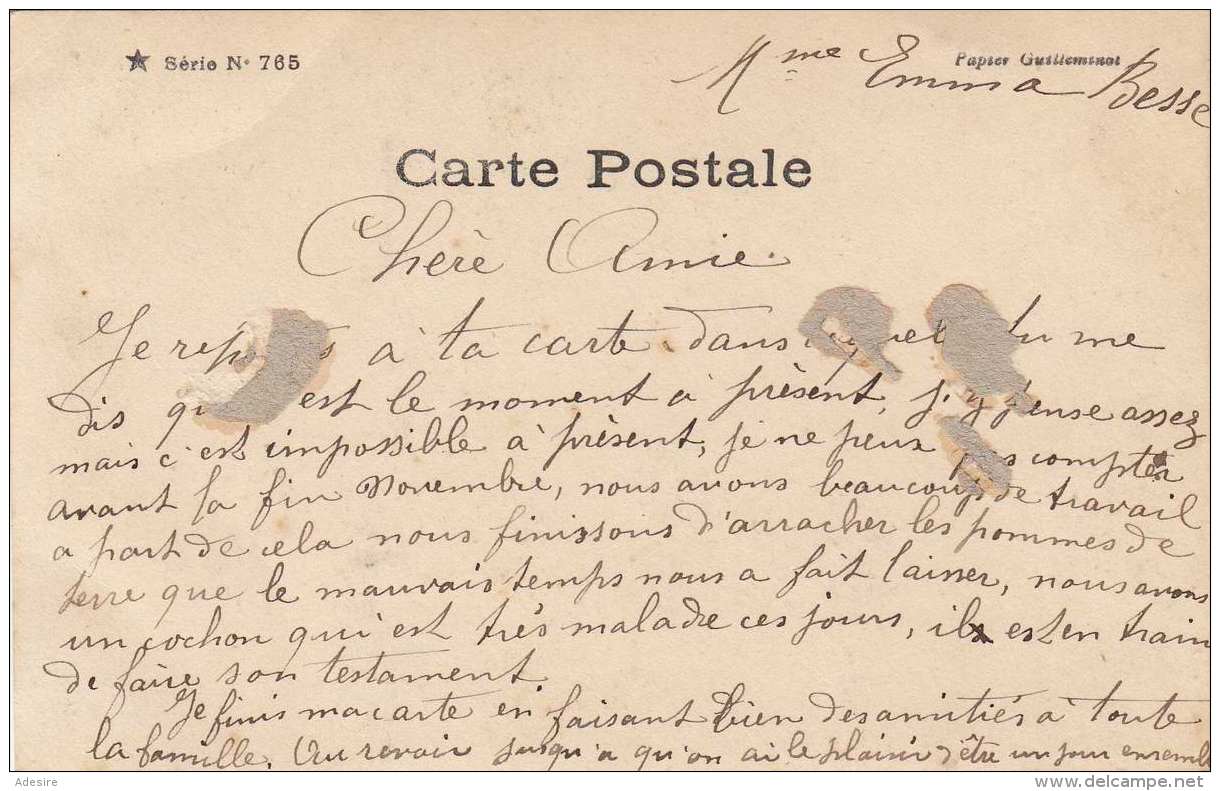 ★ Série N° 765
Papier Guilleminot
Mme Emma Besse
Carte Postale
Chère Amie.
Je rep s à ta carte dans tu me
dis qu est le moment à présent, j'y pense assez
mais c'est impossible à présent, je ne peux pas compter
avant la fin Novembre, nous avons beaucoup de travail
a part de cela nous finissons d'arracher les pommes de
terre que le mauvais temps nous a fait laisser, nous avons
un cochon qui est très malade ces jours, il est en train
de faire son testament
Je finis ma carte en faisant bien des amitiés à toute
la famille. Au revoir jusqu'a qu'on ai le plaisir d'être un jour ensembl
Adesire
www.delcampe.net